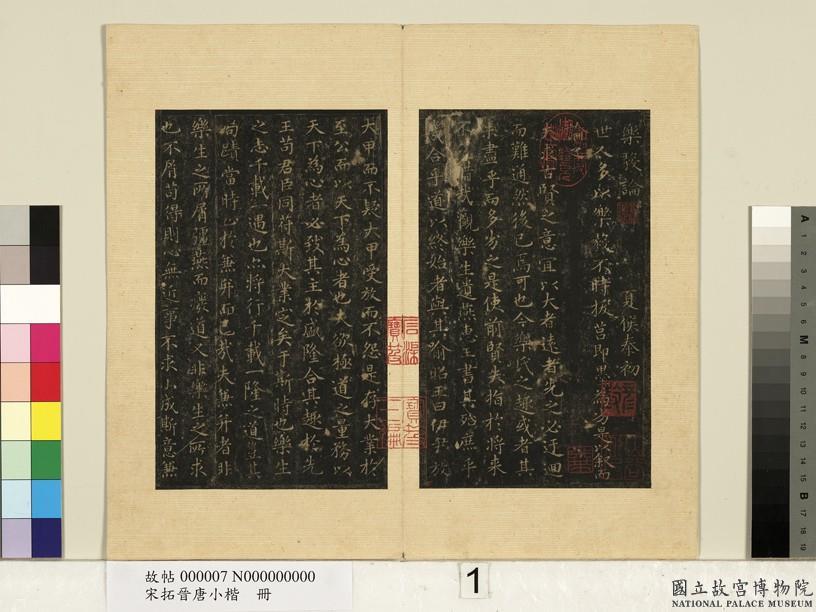 樂毅論 夏侯泰初
世人多以樂毅不時拔莒即墨為劣是以敘而
論之
夫求古賢之意宜以大者遠者先之必迂迴
而難通然後已焉可也今樂氏之趣或者其
未盡乎而多劣之是使前賢失指於將來
不惜哉觀樂生遺燕惠王書其殆庶乎
機合乎道以終始者與其喻昭王曰伊尹放
大甲而不疑大甲受放而不怨是存大業於
至公而以天下為心者也夫欲極道之量務以
天下為心者必致其主於盛隆合其趣於先
王苟君臣同符斯大業定矣于斯時也樂生
之志千載一遇也亦將行千載一隆之道豈其
局蹟當時止於兼并而已哉夫兼并者非
樂生之所屑彊燕而廢道又非樂生之所求
也不屑苟得則心無近事不求小成斯意兼
故帖 000007 N000000000
宋拓晉唐小楷 冊
1
國立故宮博物院
NATIONAL PALACE MUSEUM